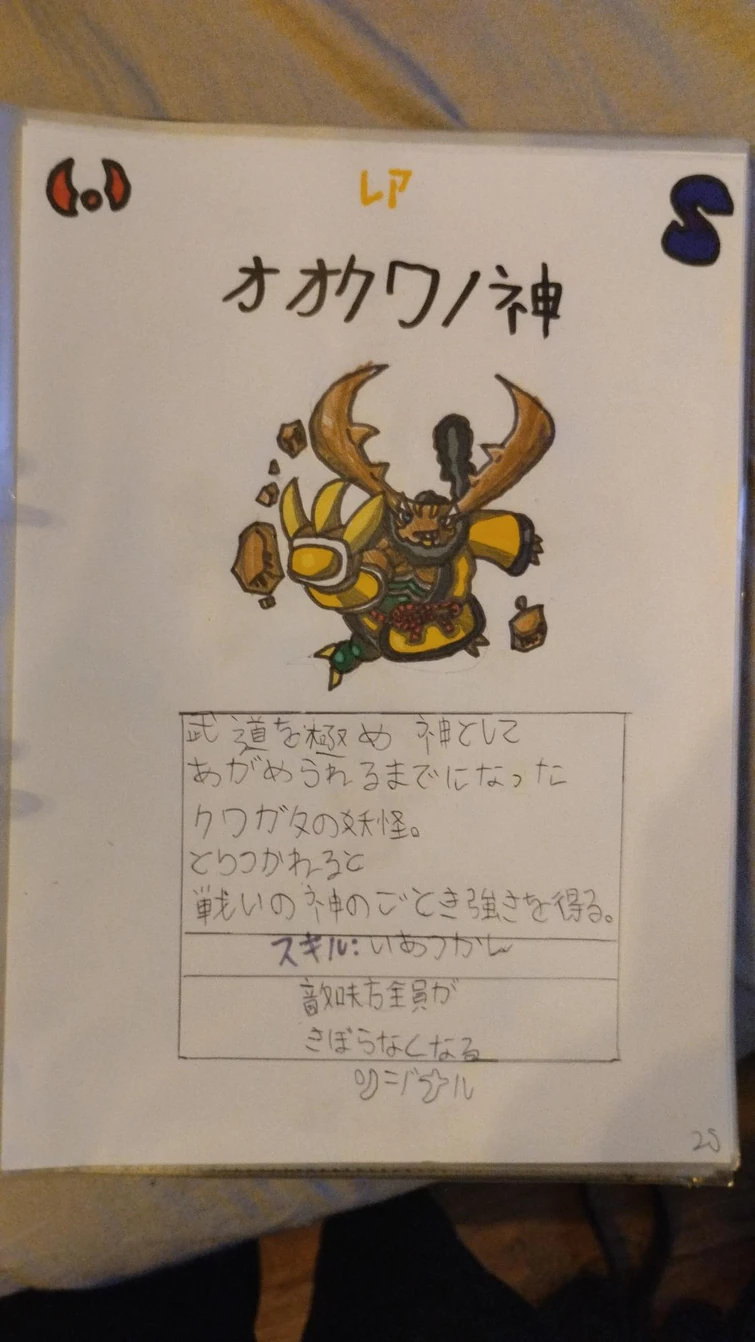 レア
S
オオクワノ神
武道を極め 神として
あがめられるまでになった
クワガタの妖怪。
とりつかれると
戦いの神のごとき強さを得る。
スキル:いあつかん
敵味方全員が
さぼらなくなる